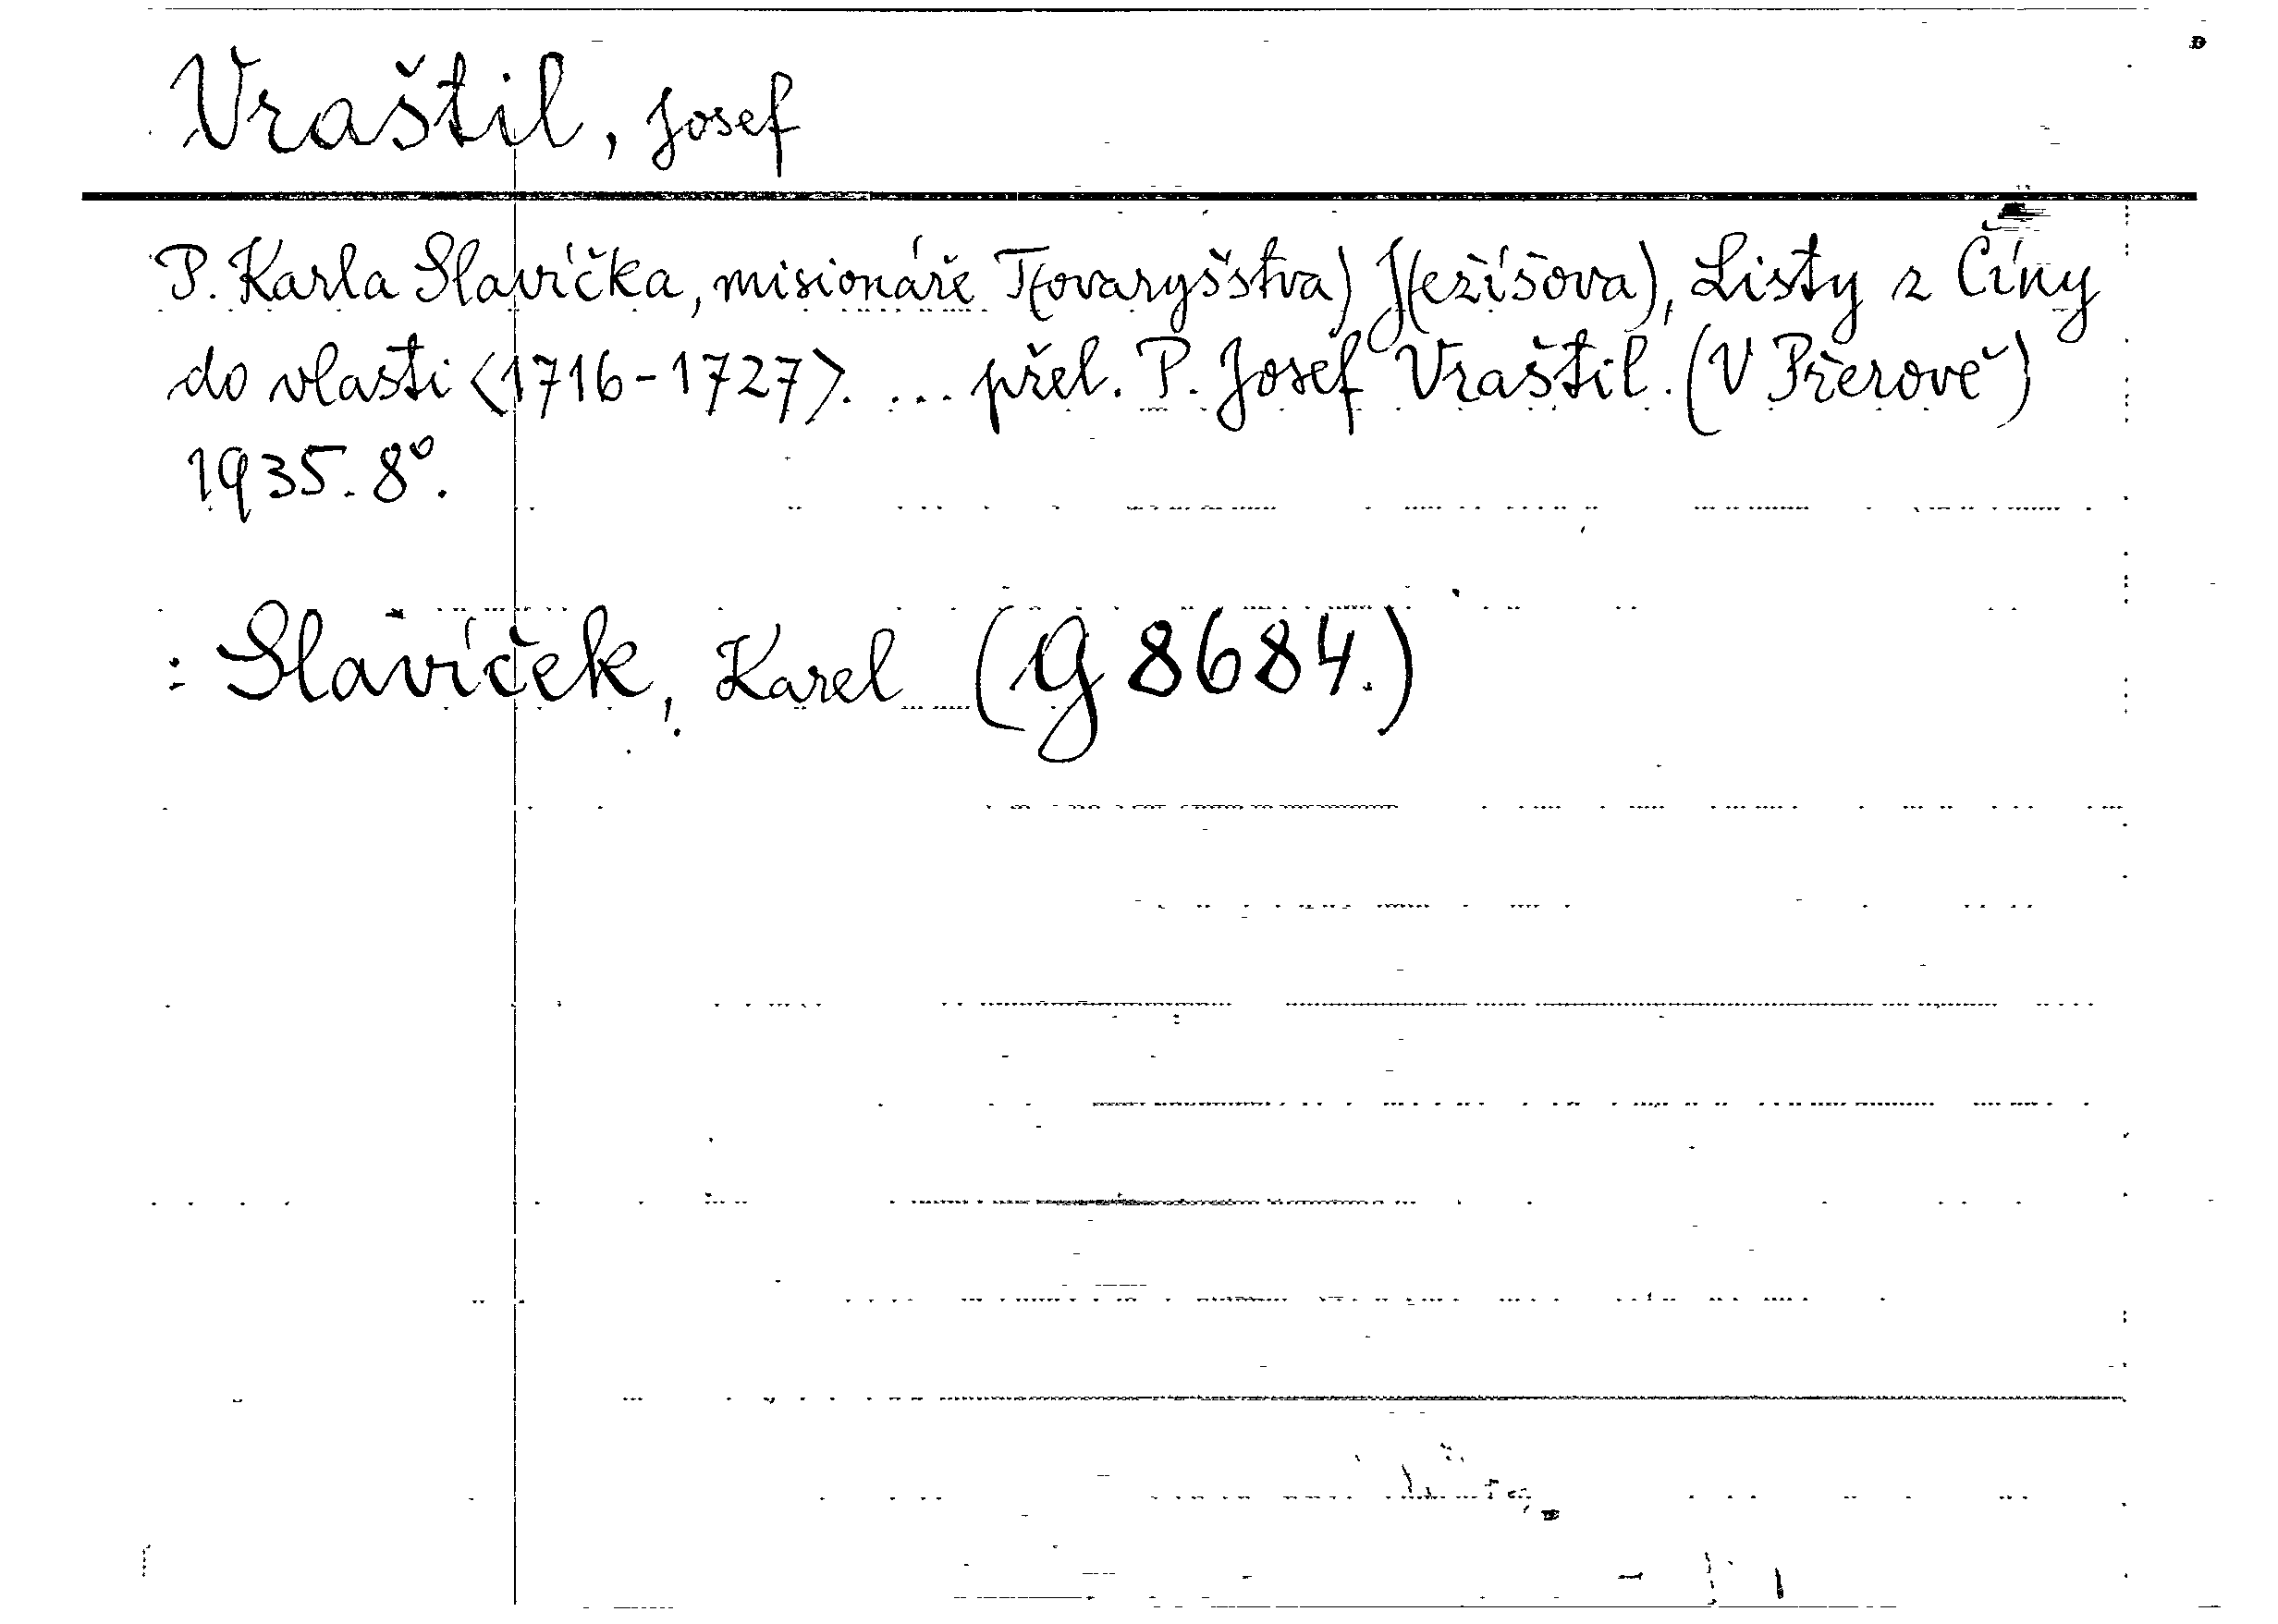 Vraštil, Josef
P. Karla Slavíčka, misionáře T(ovaryšstva) J(ežíšova), Listy z Číny
do vlasti <1716-1727>. ... přel. P. Josef Vraštil. (V Přerově)
1935. 8°.
: Slavíček, Karel (G 8684.)